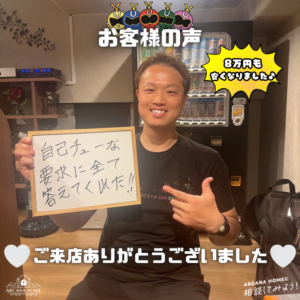 お客様の声
8万円も
安くなりました♪
自己チューな
要求に全て
答えてくれた!!
ご来店ありがとうございました
ARCANA HOME
ARCANA HOMEに
相談してみよう!